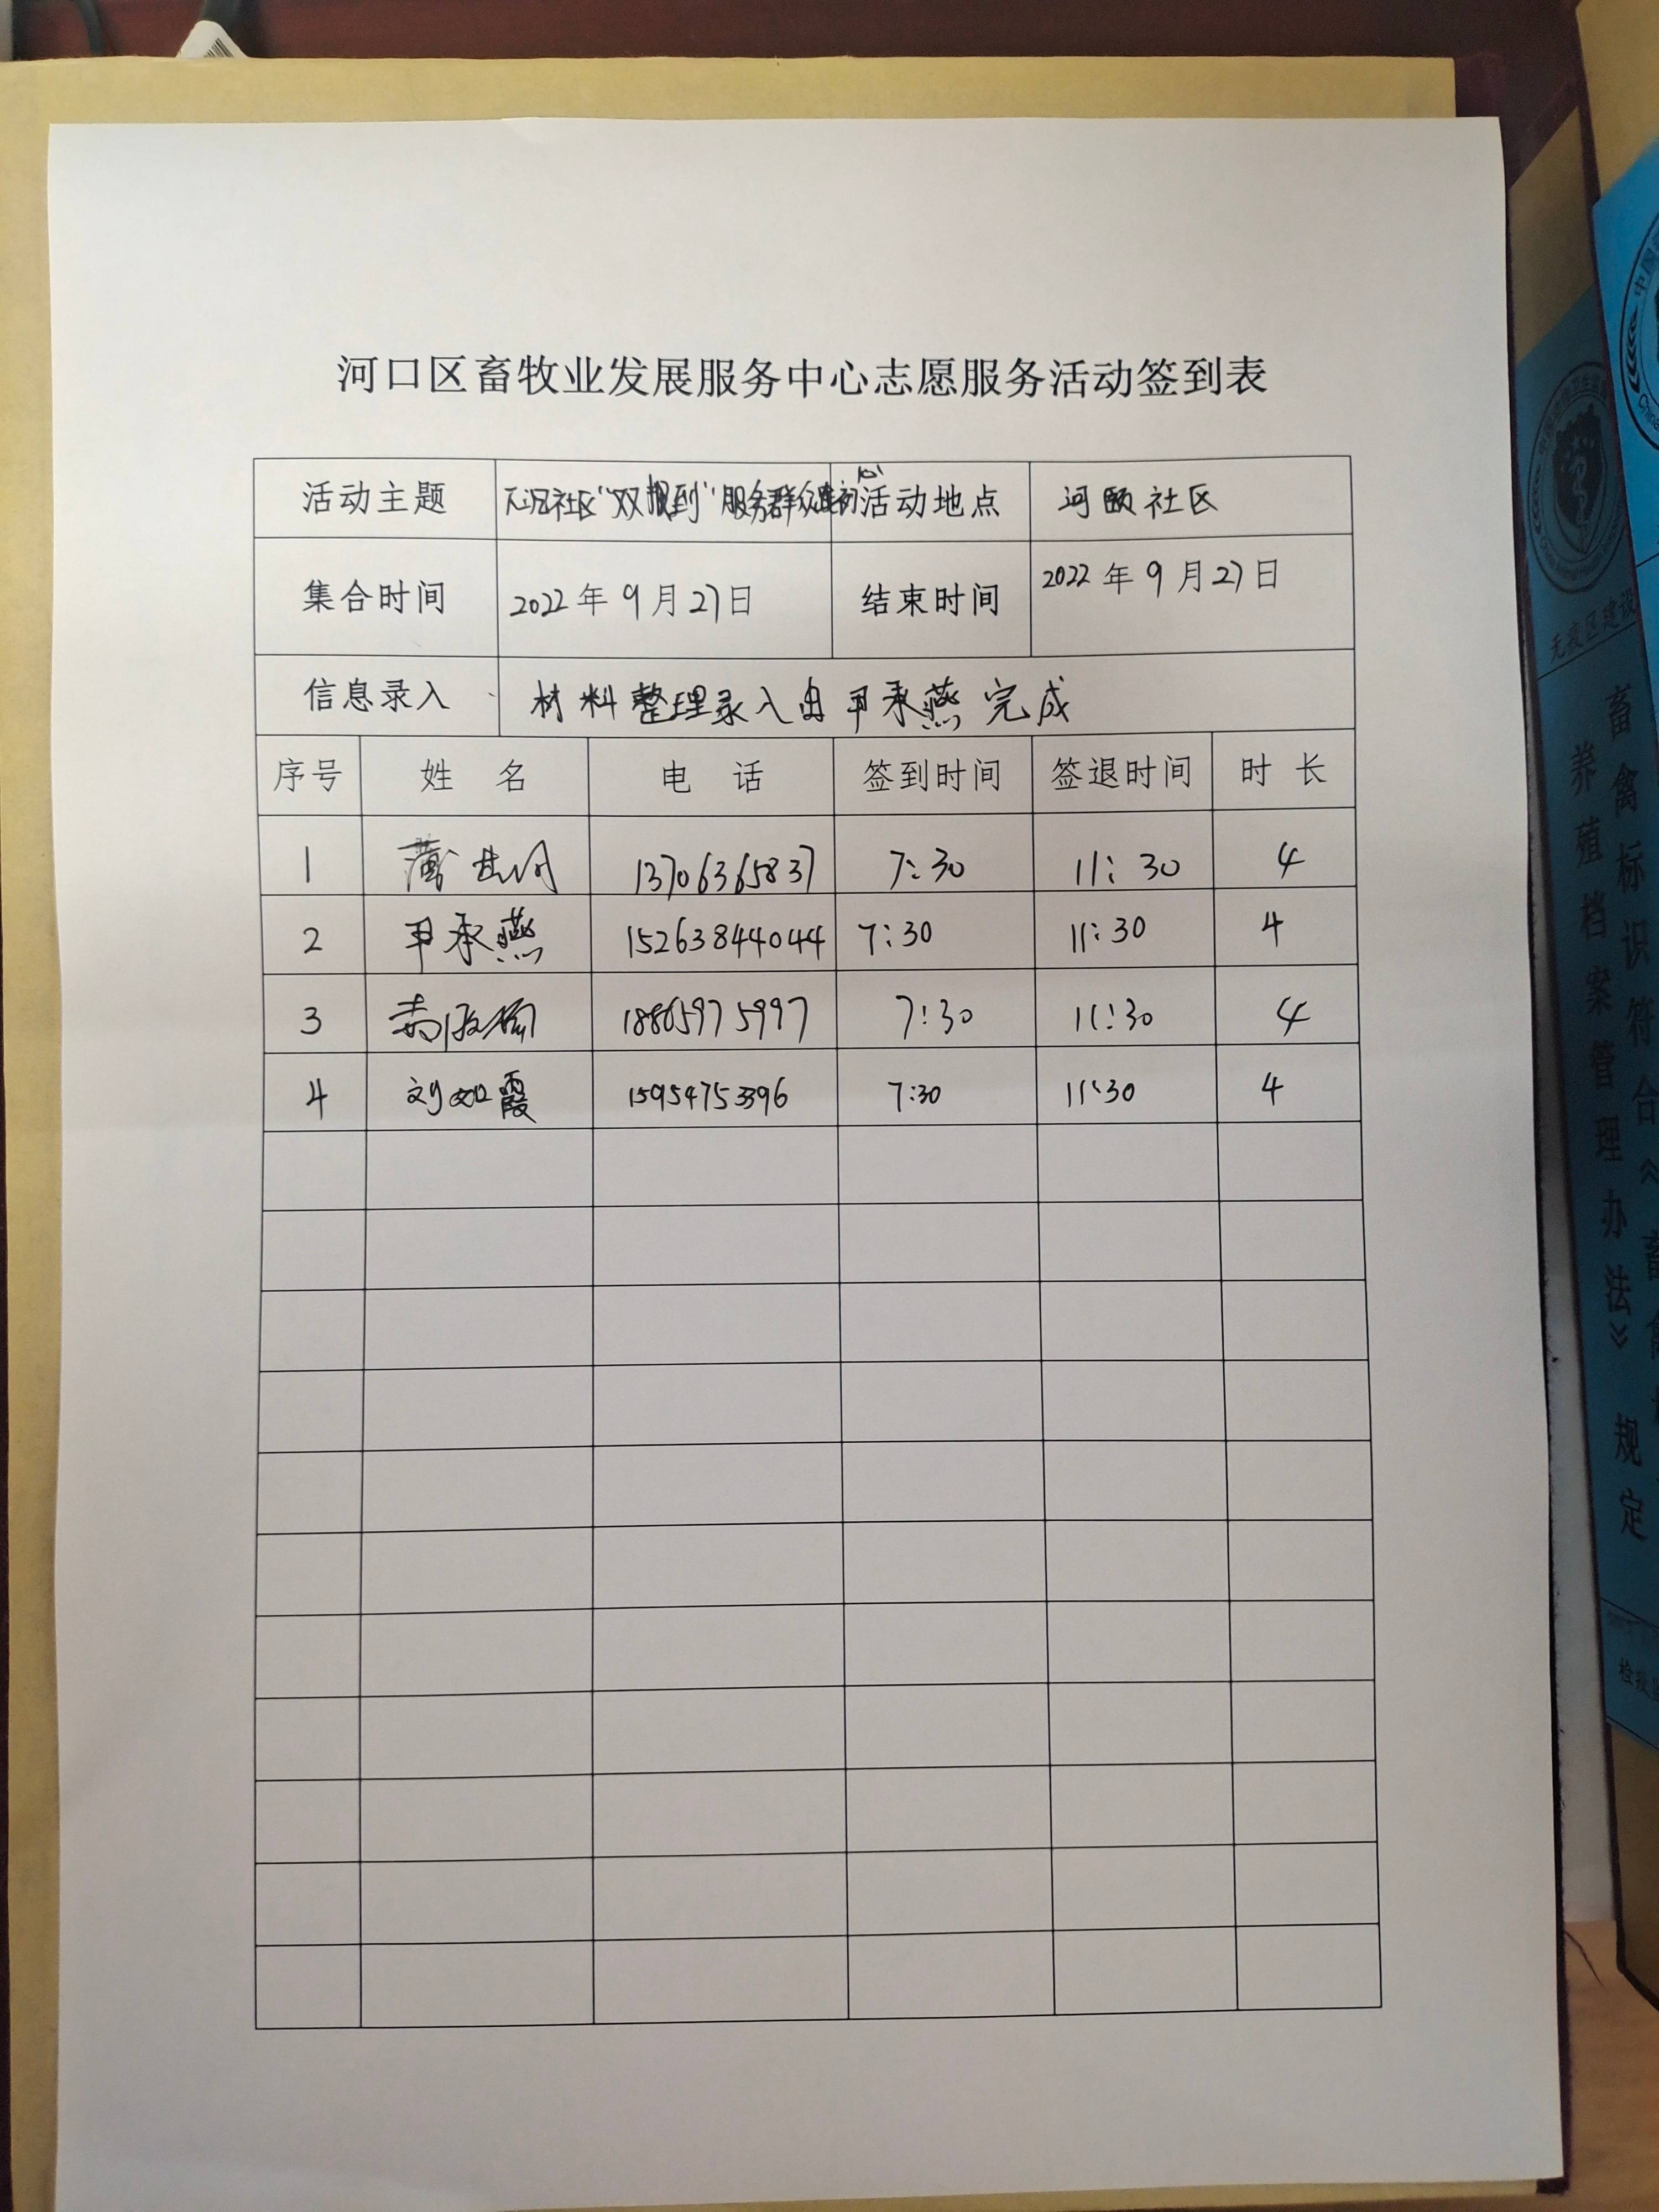 河口区畜牧业发展服务中心志愿服务活动签到表
活动主题 社区“双报到”服务群众 活动地点 河颐社区
集合时间 2022年9月27日 结束时间 2022年9月27日
信息录入 材料整理录入由尹承燕完成
序号 姓名 电话 签到时间 签退时间 时长
1 13706365837 7:30 11:30 4
2 尹承燕 15263844044 7:30 11:30 4
3 18865975997 7:30 11:30 4
4 刘如霞 15954753396 7:30 11:30 4
无疫区建设
畜禽标识符合《畜禽
养殖档案管理办法》规定